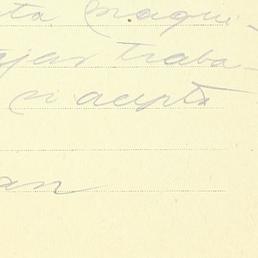 ta maqui-
ajar traba-
si acepta
an